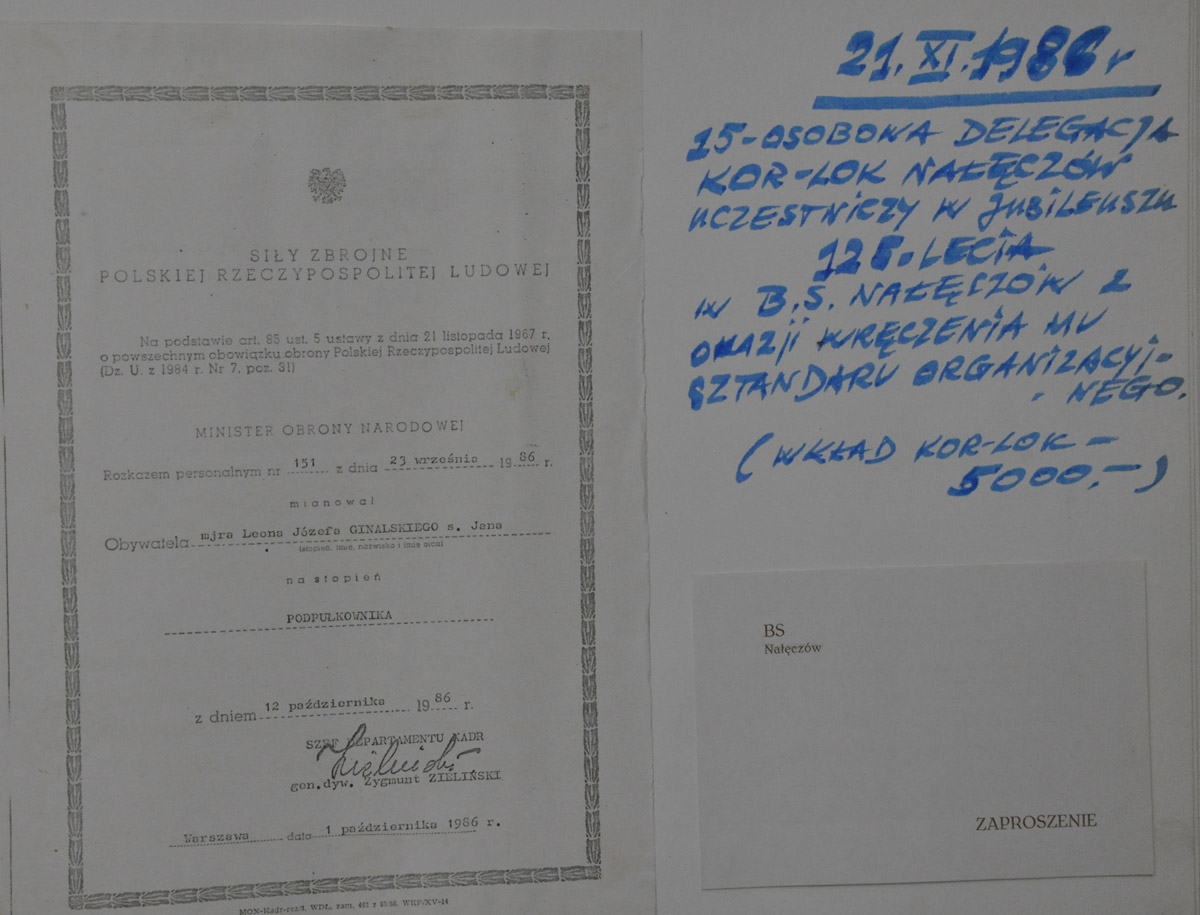 SIŁY ZBROJNE
POLSKIEJ RZECZYPOSPOLITEJ LUDOWEJ
Na podstawie art. 85 ust. 5 ustawy z dnia 21 listopada 1967 r.
o powszechnym obowiązku obrony Polskiej Rzeczypospolitej Ludowej
(Dz. U. z 1984 r. Nr 7, poz. 31)
MINISTER OBRONY NARODOWEJ
Rozkazem personalnym nr 151 z dnia 23 września 1986 r.
mianował
Obywatela mjra Leona Józefa GINALSKIEGO s. Jana
(stopień, imię, nazwisko i imię ojca)
na stopień
PODPUŁKOWNIKA
z dniem 12 października 1986 r.
SZEF DEPARTAMENTU KADR
gen.dyw. Zygmunt ZIELIŃSKI
Warszawa data 1 października 1986 r.
21.XI.1986 r
15-OSOBOWA DELEGACJA
KOR-LOK NAŁĘCZÓW
UCZESTNICZY W JUBILEUSZU
125-LECIA
W B.S. NAŁĘCZÓW Z
OKAZJI WRĘCZENIA MU
SZTANDARU ORGANIZACYJ-
- NEGO.
(WKŁAD KOR-LOK -
5000.-)
BS
Nałęczów
ZAPROSZENIE